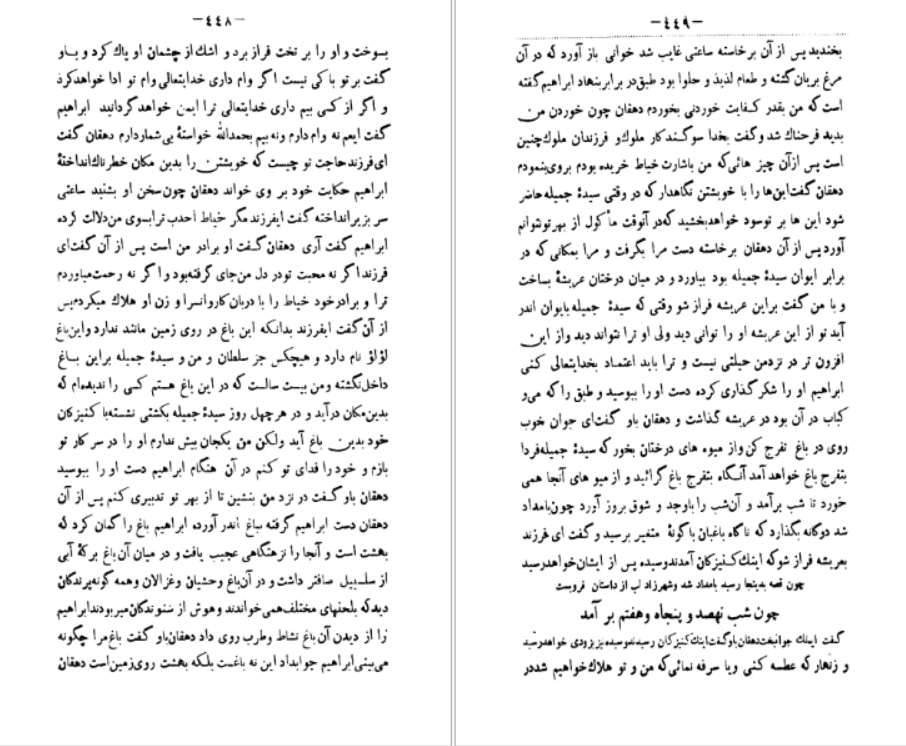 -٤٤٨-
بسوخت و او را بر تخت فراز برد و اشك از چشمان او پاك کرد و باو
گفت بر تو باکی نیست اگر وام داری خدایتعالی وام تو ادا خواهد کرد
و اگر از کسی بیم داری خدایتعالی ترا ایمن خواهد گردانید ابراهیم
گفت ایعم نه وام دارم ونه بیم بحمدالله خواستهٔ بی‌شمار دارم دهقان گفت
ای فرزند حاجت تو چیست که خویشتن را بدین مکان خطرناك انداختهٔ
ابراهیم حکایت خود بر وی خواند دهقان چون سخن او بشنید ساعتی
سر بزیر انداخته گفت ایفرزند مگر خیاط احدب ترا بسوی من دلالت کرده
ابراهیم گفت آری دهقان گفت او برادر من است پس از آن گفت ای
فرزند اگر نه محبت تو در دل من جای گرفته بود و اگر نه رحمت میاوردم
ترا و برادر خود خیاط را با دربان کاروانسرا و زن او هلاك میکردم پس
از آن گفت ایفرزند بدانکه این باغ در روی زمین مانند ندارد و این باغ
لؤلؤ نام دارد و هیچکس جز سلطان و من و سیدهٔ جمیله براین باغ
داخل نگشته و من بیست سالست که در این باغ هستم کسی را ندیده‌ام که
بدین مکان در آید و در هر چهل روز سیدهٔ جمیله بکشتی نشسته با کنیزکان
خود بدین باغ آید ولکن من یکجان بیش ندارم او را در سر کار تو
بازم و خود را فدای تو کنم در آن هنگام ابراهیم دست او را ببوسید
دهقان باو گفت در نزد من بنشین تا از بهر تو تدبیری کنم پس از آن
دهقان دست ابراهیم گرفته بباغ اندر آورده ابراهیم باغ را گمان کرد که
بهشت است و آنجا را نزهتگاهی عجیب یافت و در میان آن باغ برکهٔ آبی
از سلسبیل صافتر داشت و در آن باغ وحشیان و غزالان و همه گونه پرندگان
دید که بلحنهای مختلف همی خواندند و هوش از شنوندگان میربودند ابراهیم
را از دیدن آن باغ نشاط و طرب روی داد دهقان باو گفت باغ مرا چگونه
می‌بینی ابراهیم جوابداد این نه باغست بلکه بهشت روی زمین است دهقان
-٤٤٩-
بخندید پس از آن برخاسته ساعتی غایب شد خوانی باز آورد که در آن
مرغ بریان گشته و طعام لذیذ و حلوا بود طبق در برابر بنهاد ابراهیم گفته
است که من بقدر کفایت خوردنی بخوردم دهقان چون خوردن من
بدید فرحناك شد و گفت بخدا سوگند کار ملوك و فرزندان ملوك چنین
است پس از آن چیز هائی که من باشارت خیاط خریده بودم بروی بنمودم
دهقان گفت این‌ها را با خویشتن نگاهدار که در وقتی سیدهٔ جمیله حاضر
شود این ها بر تو سود خواهد بخشید که در آنوقت مأکول از بهر تو نتوانم
آورد پس از آن دهقان برخاسته دست مرا بگرفت و مرا بمکانی که در
برابر ایوان سیدهٔ جمیله بود بیاورد و در میان درختان عریشهٔ بساخت
و با من گفت براین عریشه فراز شو وقتی که سیدهٔ جمیله بایوان اندر
آید تو از این عریشه او را توانی دید ولی او ترا نتواند دید و از این
افزون تر در نزد من حیلتی نیست و ترا باید اعتماد بخدایتعالی کنی
ابراهیم او را شکر گذاری کرده دست او را ببوسید و طبق را که می و
کباب در آن بود در عریشه گذاشت و دهقان باو گفت ای جوان خوب
روی در باغ تفرج کن و از میوه های درختان بخور که سیدهٔ جمیله فردا
بتفرج باغ خواهد آمد آنگاه بتفرج باغ گرائید و از میو های آنجا همی
خورد تا شب برآمد و آن شب را باوجد و شوق بروز آورد چون بامداد
شد دوگانه بگذارد که ناگاه باغبان باگونهٔ متغیر برسید و گفت ای فرزند
بعریشه فراز شو که اینك کنیزکان آمدند و سیده پس از ایشان خواهد رسید
چون قصه بدینجا رسید بامداد شد و شهرزاد لب از داستان فروبست
چون شب نهصد و پنجاه و هفتم بر آمد
گفت ایملك جوانبخت دهقان باو گفت اینك کنیزکان رسیدند و سیده نیز بزودی خواهد رسید
و زنهار که عطسه کنی و یا سرفه نمائی که من و تو هلاك خواهیم شد در